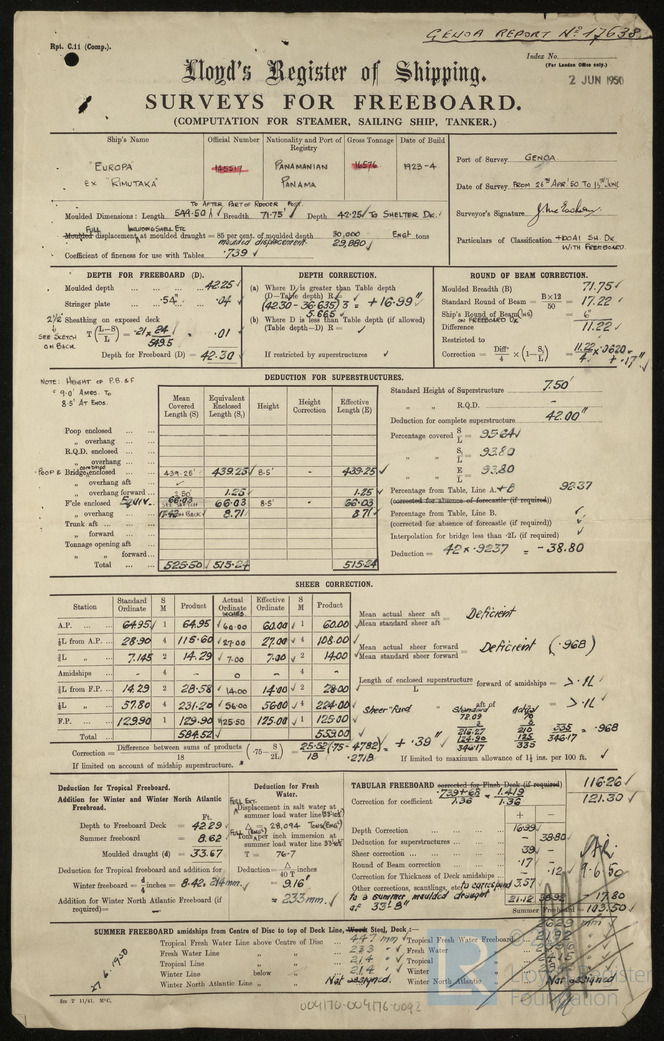 GENOA REPORT No 17638
Rpt. C.11 (Comp.).
Index No.
(For London Office only.)
2 JUN 1950
Lloyd's Register of Shipping.
SURVEYS FOR FREEBOARD.
(COMPUTATION FOR STEAMER, SAILING SHIP, TANKER.)
Ship's Name Official Number Nationality and Port of Registry Gross Tonnage Date of Build
"EUROPA" EX "RIMUTAKA" PANAMANIAN PANAMA 16576 1923-4
Port of Survey GENOA
Date of Survey FROM 26TH APR' 50 TO
Surveyor's Signature
Particulars of Classification +100A1 SH. DK WITH FREEBOARD.
TO AFTER PART OF RUDDER POST.
Moulded Dimensions: Length 549.50 Breadth 71.75' Depth 42.25 TO SHELTER DK.
FULL INCLUDING SHELL ETC
Moulded displacement at moulded draught = 85 per cent. of moulded depth 30,000 ENGL tons
moulded displacement 29,880
Coefficient of fineness for use with Tables .739
DEPTH FOR FREEBOARD (D).
Moulded depth 42.25
Stringer plate .54" .04
2½" Sheathing on exposed deck
SEE SKETCH ON BACK
T (L–S / L) = .21 × 24 / 549.5 .01
Depth for Freeboard (D) = 42.30
DEPTH CORRECTION.
(a) Where D is greater than Table depth
(D—Table depth) R =
(42.30 - 36.635) 3 = + 16.99"
5.665
(b) Where D is less than Table depth (if allowed)
(Table depth—D) R =
If restricted by superstructures
ROUND OF BEAM CORRECTION.
Moulded Breadth (B) 71.75
Standard Round of Beam = B×12 / 50 = 17.22
Ship's Round of Beam = 6"
ON FREEBOARD DK
Difference 11.22
Restricted to
Correction = Diff / 4 × (1 – S₁ / L) = 11.22 / 4 × .0620 = + .17"
NOTE: HEIGHT OF P.B. & F
9.0' AMIDS. TO
8.5' AT ENDS.
DEDUCTION FOR SUPERSTRUCTURES.
Mean Covered Length (S) Equivalent Enclosed Length (S₁) Height Height Correction Effective Length (E)
Poop enclosed
„ overhang
R.Q.D. enclosed
„ overhang
POOP & Bridge combined enclosed 439.25' 439.25 8.5' - 439.25
„ overhang aft
„ overhang forward 2.50 1.25 1.25
F'cle enclosed EQUIV. 66.03 66.03 8.5' - 66.03
„ overhang 8.71 8.71
Trunk aft
„ forward
Tonnage opening aft
„ „ forward
Total 525.50 515.24 515.24
Standard Height of Superstructure 7.50'
„ „ R.Q.D. -
Deduction for complete superstructure 42.00"
Percentage covered S / L = 95.64
„ „ S₁ / L = 93.80
„ „ E / L = 93.80
Percentage from Table, Line A. + B 92.37
(corrected for absence of forecastle (if required))
Percentage from Table, Line B.
(corrected for absence of forecastle (if required))
Interpolation for bridge less than ·2L (if required)
Deduction = 42 × .9237 = - 38.80
SHEER CORRECTION.
Station Standard Ordinate S M Product Actual Ordinate Effective Ordinate S M Product
INCHES
A.P. 64.95 1 64.95 60.00 60.00 1 60.00
⅙L from A.P. 28.90 4 115.60 27.00 27.00 4 108.00
⅓L „ 7.145 2 14.29 7.00 7.00 2 14.00
Amidships - 4 - 0 - 4 -
⅓L from F.P. 14.29 2 28.58 14.00 14.00 2 28.00
⅙L „ 57.80 4 231.20 56.00 56.00 4 224.00
F.P. 129.90 1 129.90 125.50 125.00 1 125.00
Total 584.52 559.00
Mean actual sheer aft / Mean standard sheer aft = Deficient
Mean actual sheer forward / Mean standard sheer forward = Deficient (.968)
Length of enclosed superstructure / L forward of amidships = > .1L
„ „ aft of „ = > .1L
Sheer Fwd
Standard Actual
72.09 70
3 3
216.27 210
129.90 125
346.17 335
335 / 346.17 = .968
Correction = Difference between sums of products / 18 (·75– S / 2L) = 25.52 / 18 (.75 - .4782) = + .39"
.2718
If limited on account of midship superstructure.
If limited to maximum allowance of 1½ ins. per 100 ft.
Deduction for Tropical Freeboard.
Addition for Winter and Winter North Atlantic Freeboard.
Ft.
Depth to Freeboard Deck = 42.29
Summer freeboard = 8.62
Moulded draught (d) = 33.67
Deduction for Tropical freeboard and addition for
Winter freeboard = d / 4 inches = 8.42" 214 mm.
Addition for Winter North Atlantic Freeboard (if required) = -
Deduction for Fresh Water.
FULL EXT.
Displacement in salt water at summer load water line
Δ = 28,094 TONS (ENG.)
Tons per inch immersion at summer load water line
T = 76.7
Deduction = Δ / 40 T inches
= 9.16"
= 233 mm.
TABULAR FREEBOARD corrected for Flush Deck (if required) 116.26
Correction for coefficient .739 + .68 / 1.36 = 1.419 / 1.36 121.30
+ –
Depth Correction 16.99
Deduction for superstructures 38.80
Sheer correction .39
Round of Beam correction .17
Correction for Thickness of Deck amidships - .12
Other corrections, scantlings, etc. to correspond 3.57
to a summer moulded draught
of 33'.8"
21.12 38.92 - 17.80
Summer Freeboard = 103.50
9.6.50
SUMMER FREEBOARD amidships from Centre of Disc to top of Deck Line, Wood Steel, Deck:—
Tropical Fresh Water Line above Centre of Disc 447 mm
Fresh Water Line „ „ 233
Tropical Line „ „ 214
Winter Line below „ 214
Winter North Atlantic Line „ „ Not assigned.
Tropical Fresh Water Freeboard
Fresh Water „
Tropical „
Winter „
Winter North Atlantic „ Not assigned
27.6.1950
Lloyd's Register
Foundation
004170-004176-0092